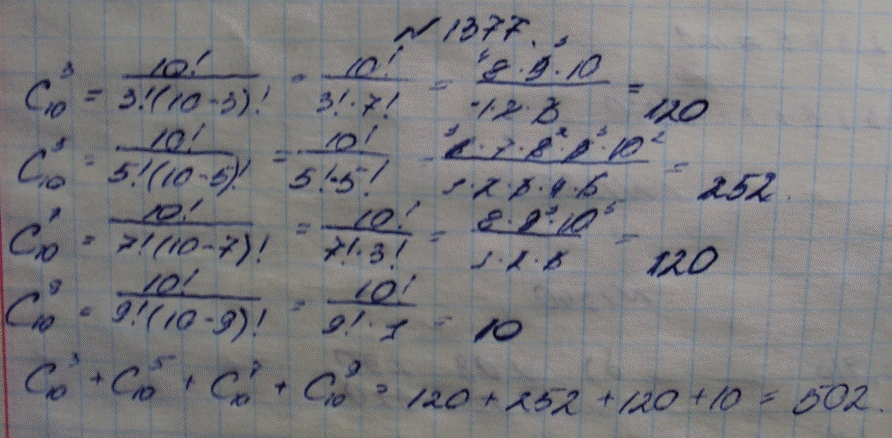 №1377.
C₁₀³ = 10!/(3!(10-3)!) = 10!/(3!·7!) = (8·9·10)/(1·2·3) = 120
C₁₀⁵ = 10!/(5!(10-5)!) = 10!/(5!·5!) = (6·7·8·9·10)/(1·2·3·4·5) = 252.
C₁₀⁷ = 10!/(7!(10-7)!) = 10!/(7!·3!) = (8·9·10)/(1·2·3) = 120
C₁₀⁹ = 10!/(9!(10-9)!) = 10!/(9!·1) = 10
C₁₀³ + C₁₀⁵ + C₁₀⁷ + C₁₀⁹ = 120 + 252 + 120 + 10 = 502.